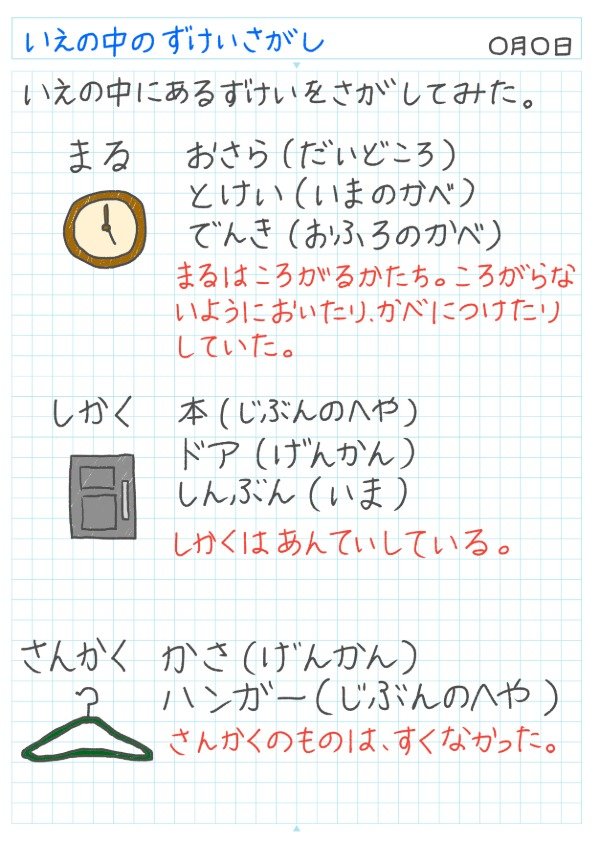 いえの中のずけいさがし
〇月〇日
いえの中にあるずけいをさがしてみた。
まる おさら(だいどころ)
とけい(いまのかべ)
でんき(おふろのかべ)
まるはころがるかたち。ころがらな
いようにおいたり、かべにつけたり
していた。
しかく 本(じぶんのへや)
ドア(げんかん)
しんぶん(いま)
しかくはあんていしている。
さんかく かさ(げんかん)
ハンガー(じぶんのへや)
さんかくのものは、すくなかった。